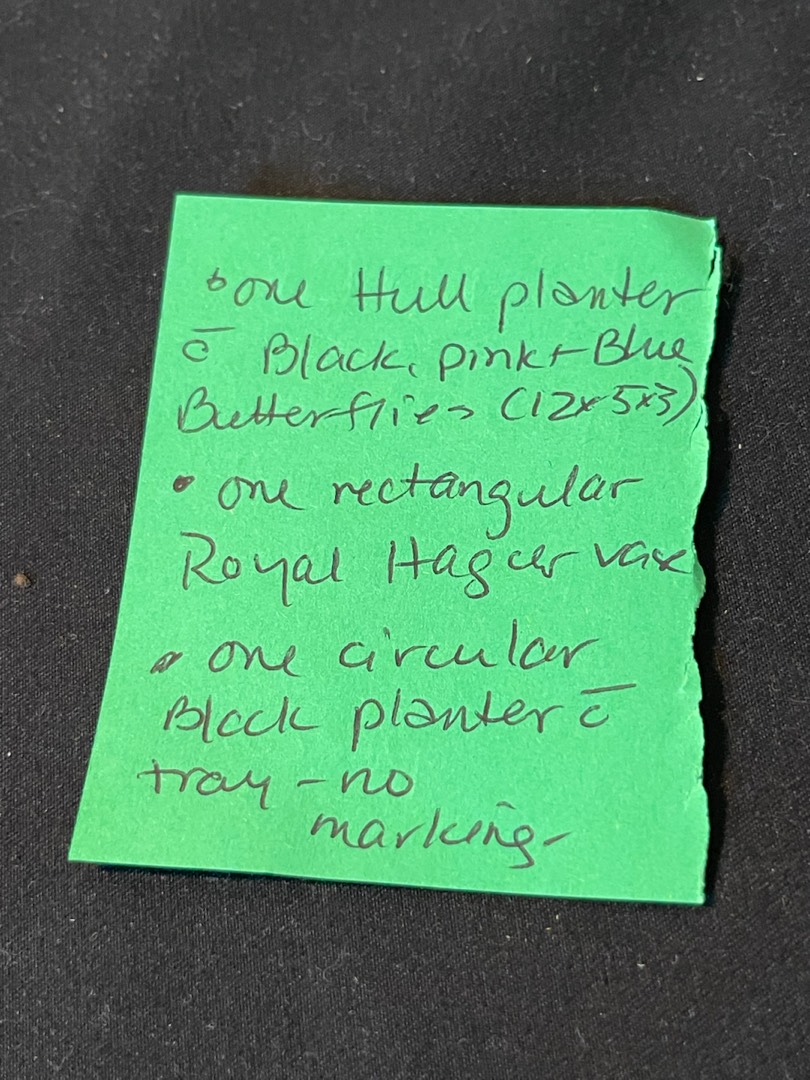 • one Hull planter
c̄ Black, pink + Blue
Butterflies (12x5x3)
• one rectangular
Royal Hager vase
• one circular
Black planter c̄
tray - no
marking -